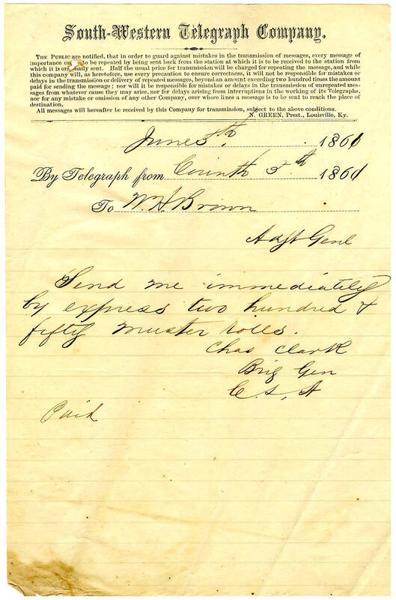 South-Western Telegraph Company.
THE PUBLIC are notified, that in order to guard against mistakes in the transmission of messages, every message of
importance ought to be repeated by being sent back from the station at which it is to be received to the station from
which it is originally sent. Half the usual price for transmission will be charged for repeating the message, and while
this company will, as heretofore, use every precaution to ensure correctness, it will not be responsible for mistakes or
delays in the transmission or delivery of repeated messages, beyond an amount exceeding two hundred times the amount
paid for sending the message; nor will it be responsible for mistakes or delays in the transmission of unrepeated mes-
sages from whatever cause they may arise, nor for delays arising from interruptions in the working of its Telegraphs,
nor for any mistake or omission of any other Company, over whose lines a message is to be sent to reach the place of
destination.
All messages will hereafter be received by this Company for transmission, subject to the above conditions.
N. GREEN, Prest., Louisville, Ky.
June 5th 1861
By Telegraph from Corinth 5th 1861
To W. H Brown
Adjt Genl
Send me immediately
by express two hundred &
fifty muster rolls.
Chas Clark
Brig Gen
C. S. A
Paid